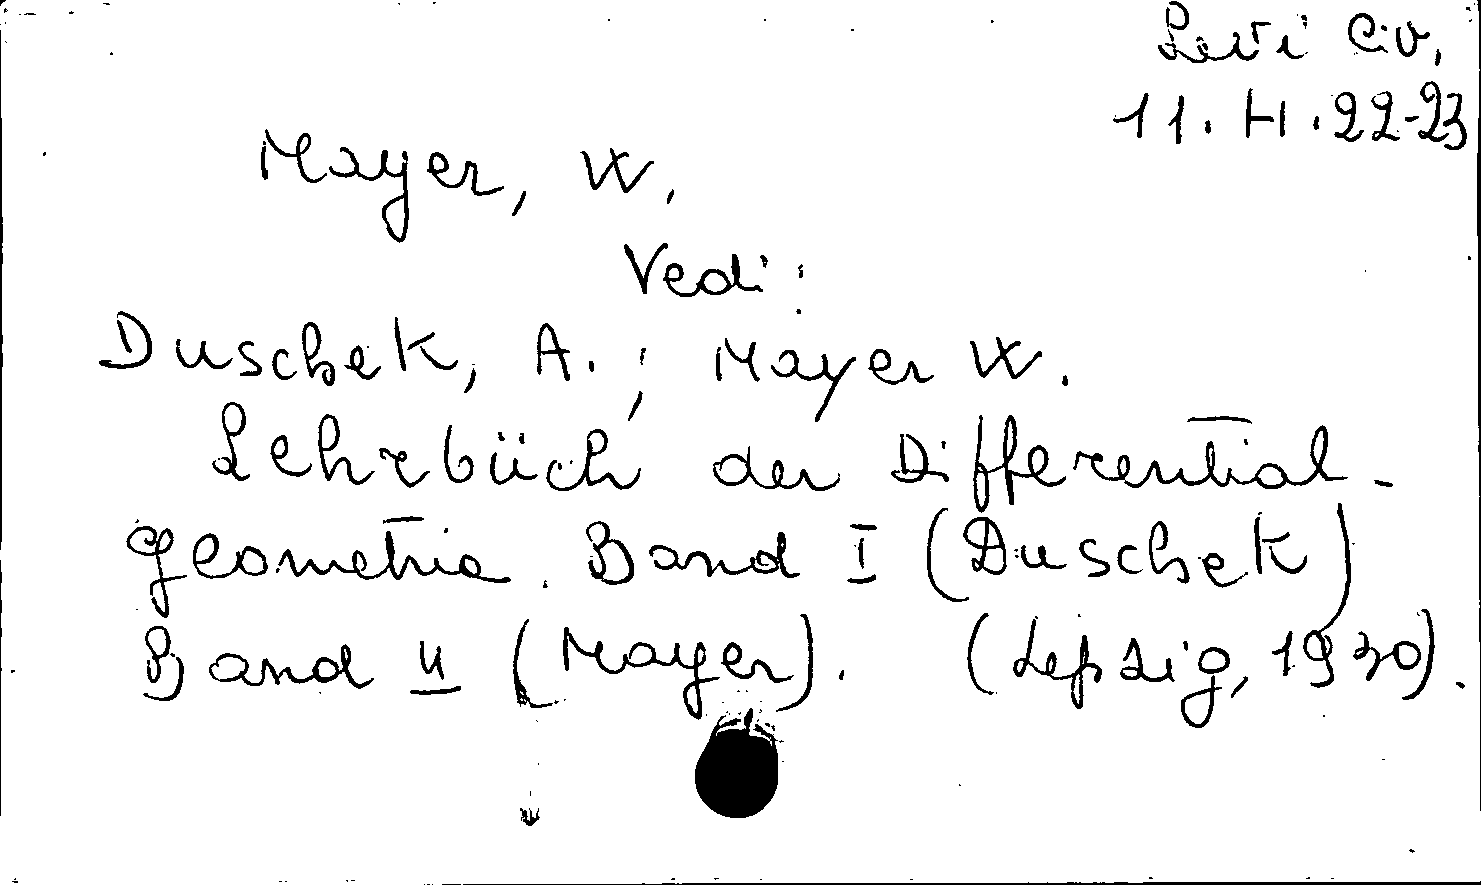 Levi Civ.
11. H. 22-23
Mayer, W.
Vedi:
Duschek, A.; Mayer W.
Lehrbüch der Differential-
geometria. Band I (Duschek)
Band II (Mayer). (Lepzig, 1930).